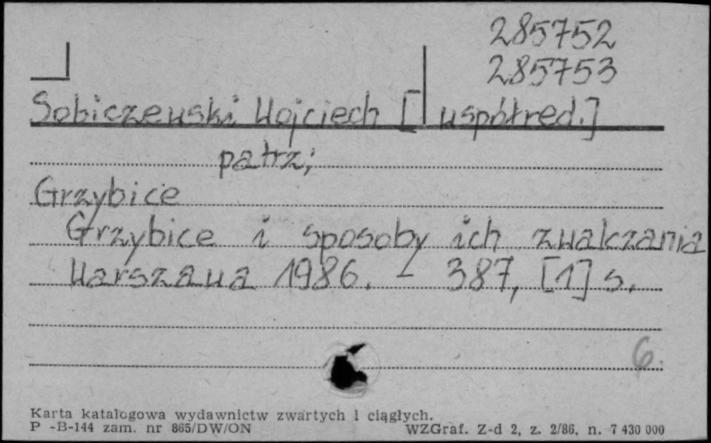 285752
285753
Sobiczewski Wojciech [współred.]
patrz:
Grzybice
Grzybice i sposoby ich zwalczania
Warszawa 1986. - 387, [1] s.
6.
Karta katalogowa wydawnictw zwartych i ciągłych.
P -B-144 zam. nr 865/DW/ON WZGraf. Z-d 2, z. 2/86, n. 7 430 000